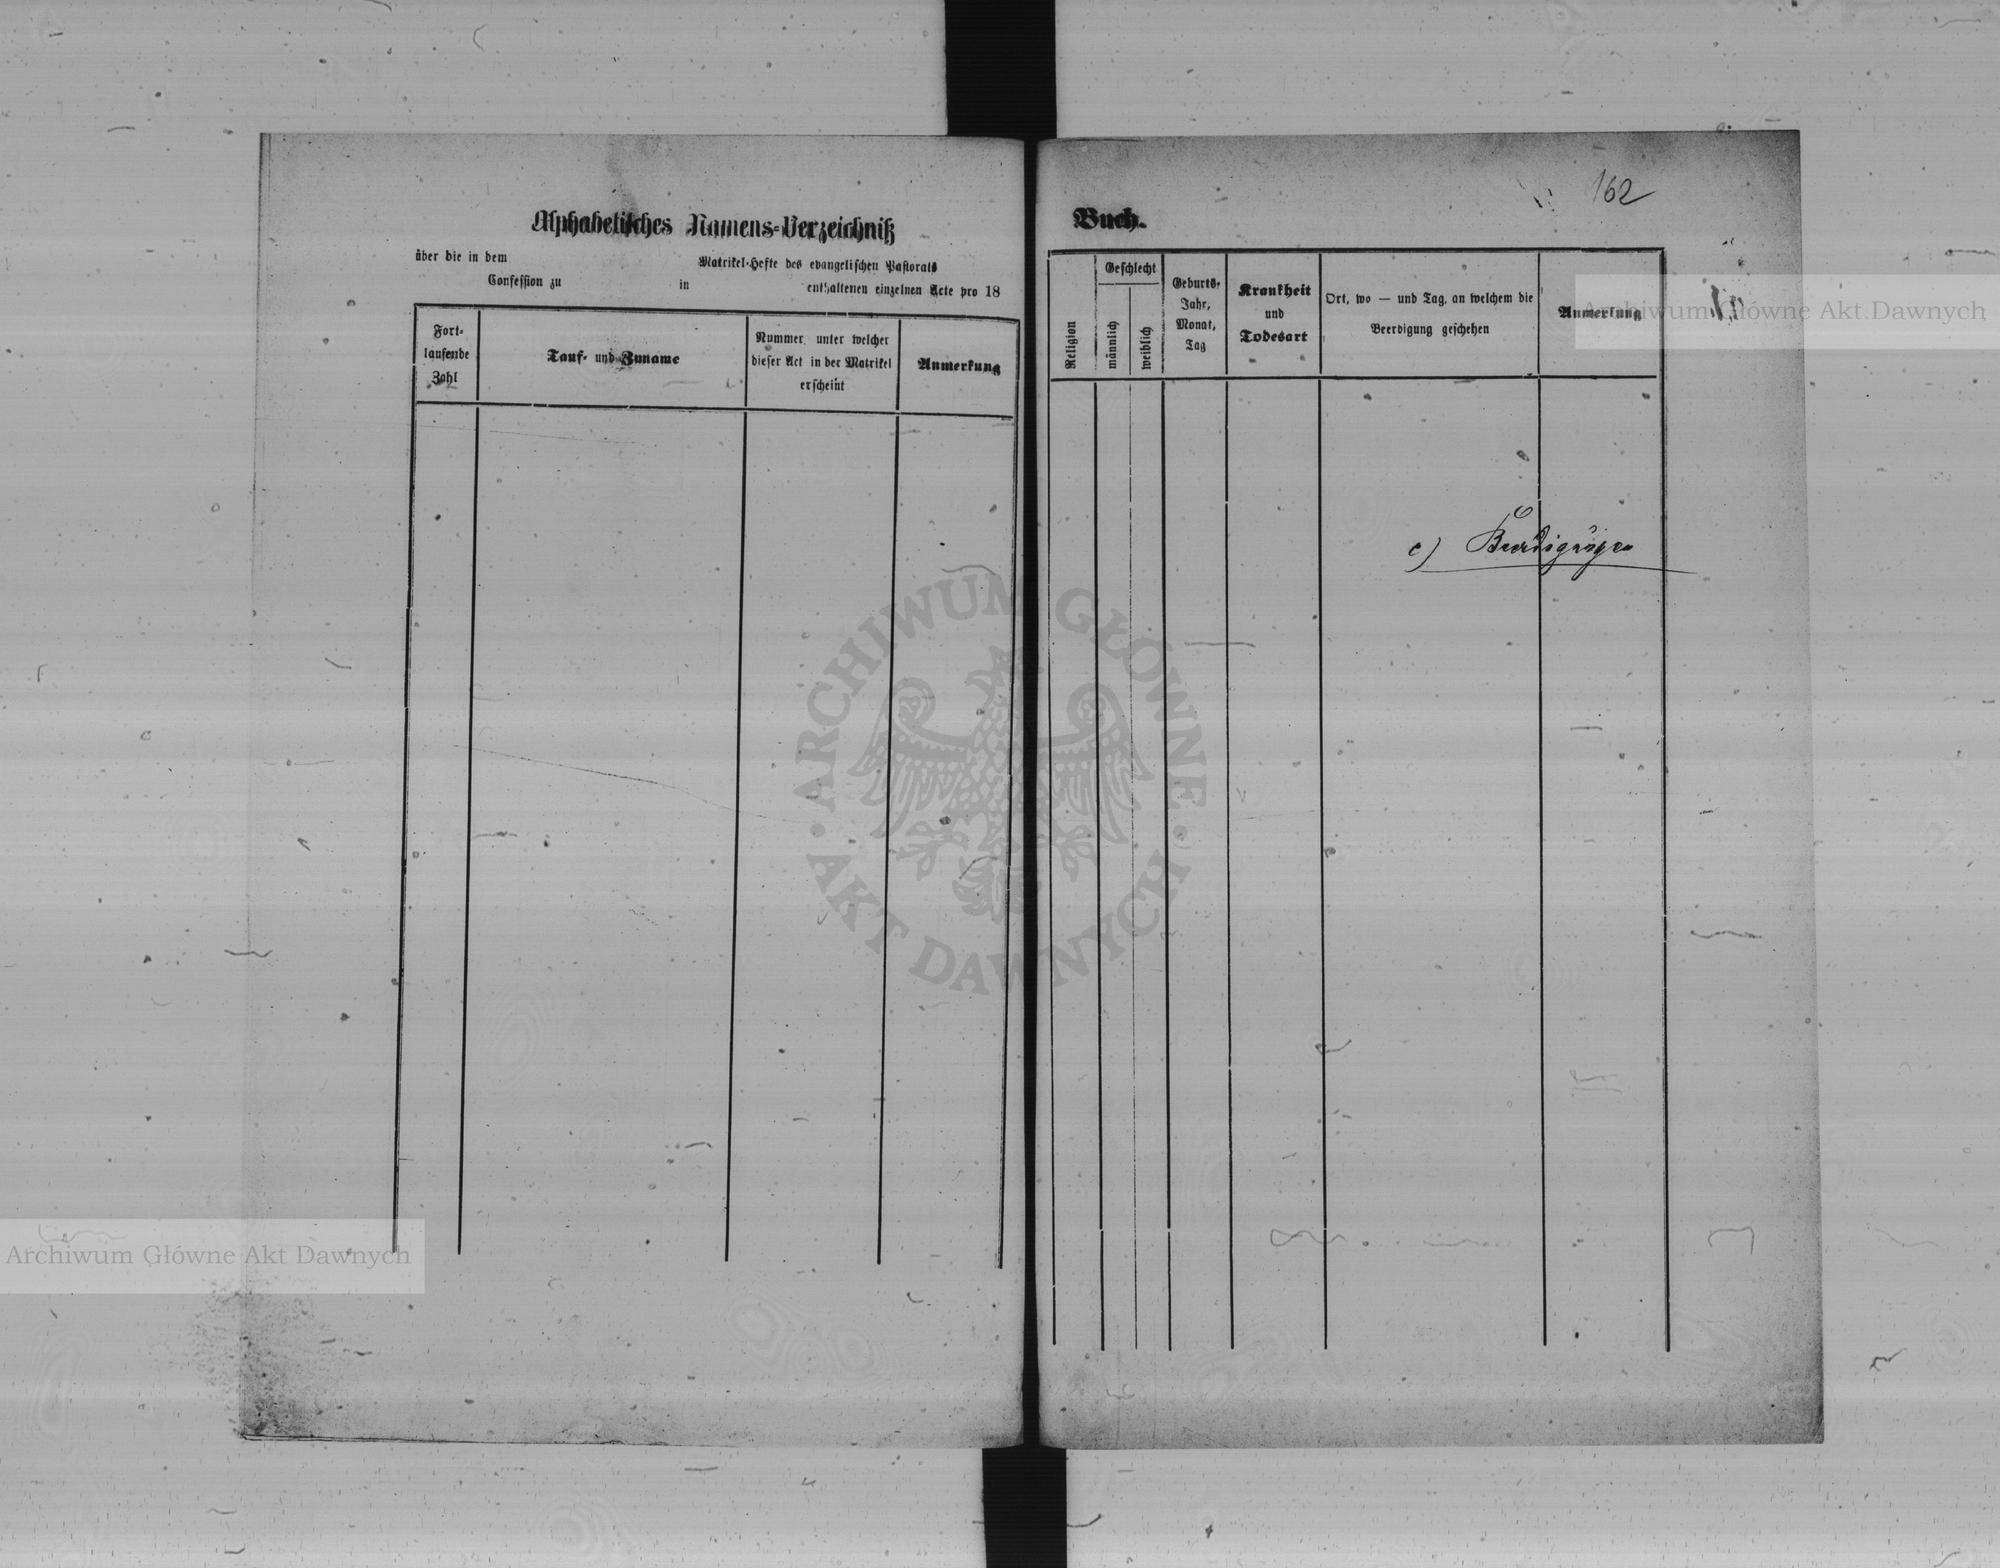 Alphabetisches Namens-Verzeichniß
über die in dem Matrikel-Hefte des evangelischen Pastorats
Confession zu in enthaltenen einzelnen Acte pro 18
Fort-
laufende
Zahl
Tauf- und Zuname
Nummer, unter welcher
dieser Act in der Matrikel
erscheint
Anmerkung
162
Buch.
Religion
Geschlecht
männlich
weiblich
Geburts-
Jahr,
Monat,
Tag
Krankheit
und
Todesart
Ort, wo — und Tag, an welchem die
Beerdigung geschehen
Anmerkung
c) Beerdigungen
Archiwum Główne Akt Dawnych
ARCHIWUM GŁÓWNE
AKT DAWNYCH
Archiwum Główne Akt Dawnych